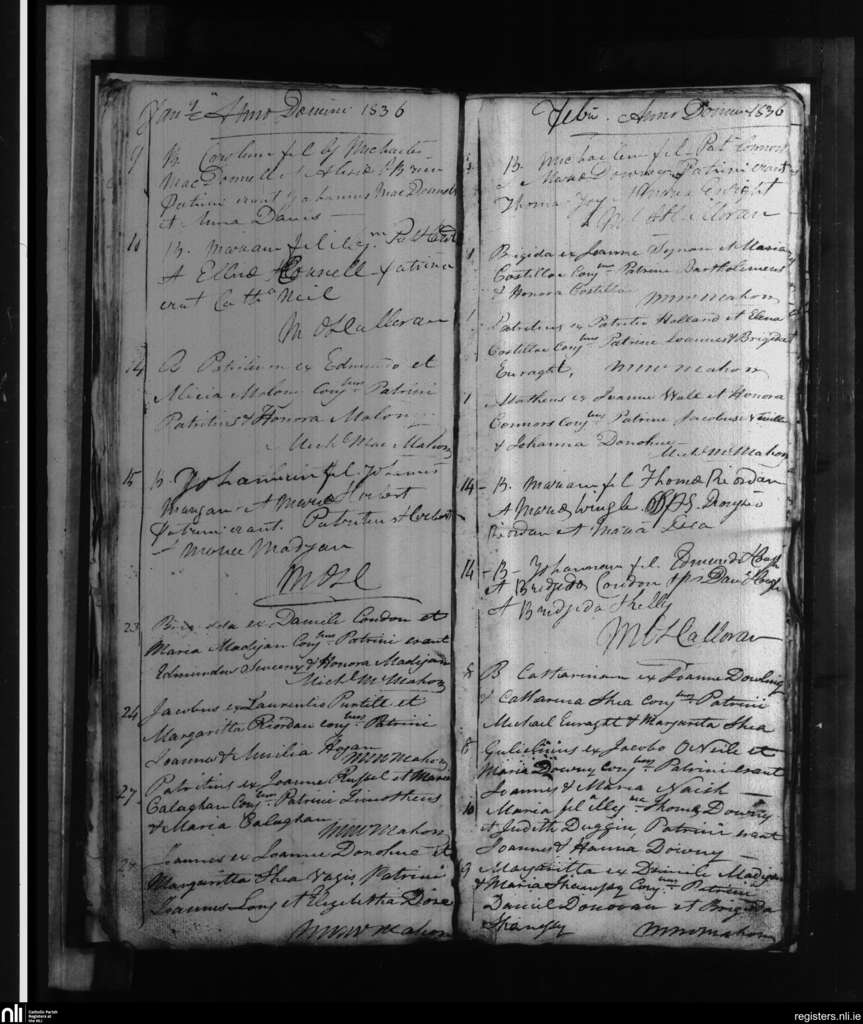 Jan'y Anno Domini 1836
9 B. Caroline fil of Michaelis
MacDonnell et Alicia
Patrini erant Johannes MacDonnell
et Anna Davis
10 B. Mariam filleg.m Pat
et Ellena Connell patrina
erat Cath.a Neil
M O'Halloran
14 B Patritium ex Edmundo et
Alicia Malony Conj.bus Patrini
Patritius & Honora Malony
Mich.l Mac Mahon
15 B. Johannem fil. Johannis
Mangan et Maria Herbert
Patrini erant. Patritius Herbert
et Maria Madigan
M O'H
23 Brigida ex Daniele Condon et
Maria Madigan Conj.bus Patrini erant
Edmundus Sweeny & Honora Madigan
Mich.l McMahon
24 Jacobus ex Laurentio Purtill et
Margaritta Riordan conj.bus Patrini
Joannes & Amilia Hogan
McMahon
27 Patritius ex Joanne Russel et Maria
Calaghan Conj.bus Patrini Timotheus
& Maria Calaghan
McMahon
Joannes ex Joanne Donohue et
Margaritta Shea Vagis, Patrini
Joannes Long et Elizabetha Dore
McMahon
Feb.ii Anno Domini 1836
B. Michaelem fil. Pat Connors
et Maria Downey Patrini erant
Thoma Foy Enright
M O'Halloran
1 Brigida ex Joanne Tynan et Maria
Costilloe Conj.bus Patrini Bartholemeus
& Honora Costilloe
McMahon
1 Patritius ex Patritio Holland et Elena
Costilloe Conj.bus Patrini Joannes & Brigida
Enraght, McMahon
1 Matheus ex Joanne Wall et Honora
Connors Conj.bus Patrini Jacobus
& Johanna Donohue
Mich.l McMahon
14 - B. Mariam fil Thoma Riordan
et Maria Wringle. Sps.
Riordan et Maria
14 - B - Johannem fil. Edmundi
et Bridgeda Condon Sps Dan.l
et Bridgeda Shelly
M O'Halloran
8 B Catharinam ex Joanne Dowling
& Catharina Shea conj.bus Patrini
Michael Enraght & Margarita Shea
8 Gulielmus ex Jacobo O'Neile et
Maria Downy conj.bus Patrini erant
Joannes & Maria Naish
10 Maria fil.a illeg.ma Thoma Downy
et Judith Duggin, Patrini erant
Joannes & Hanna Downy
9 Margaritta ex Daniele Madigan
& Maria Shaughnsy Conj.bus Patrini
Daniel Donovan et Brigida
Shanessy McMahon
nli
Catholic Parish
Registers at
the NLI
registers.nli.ie